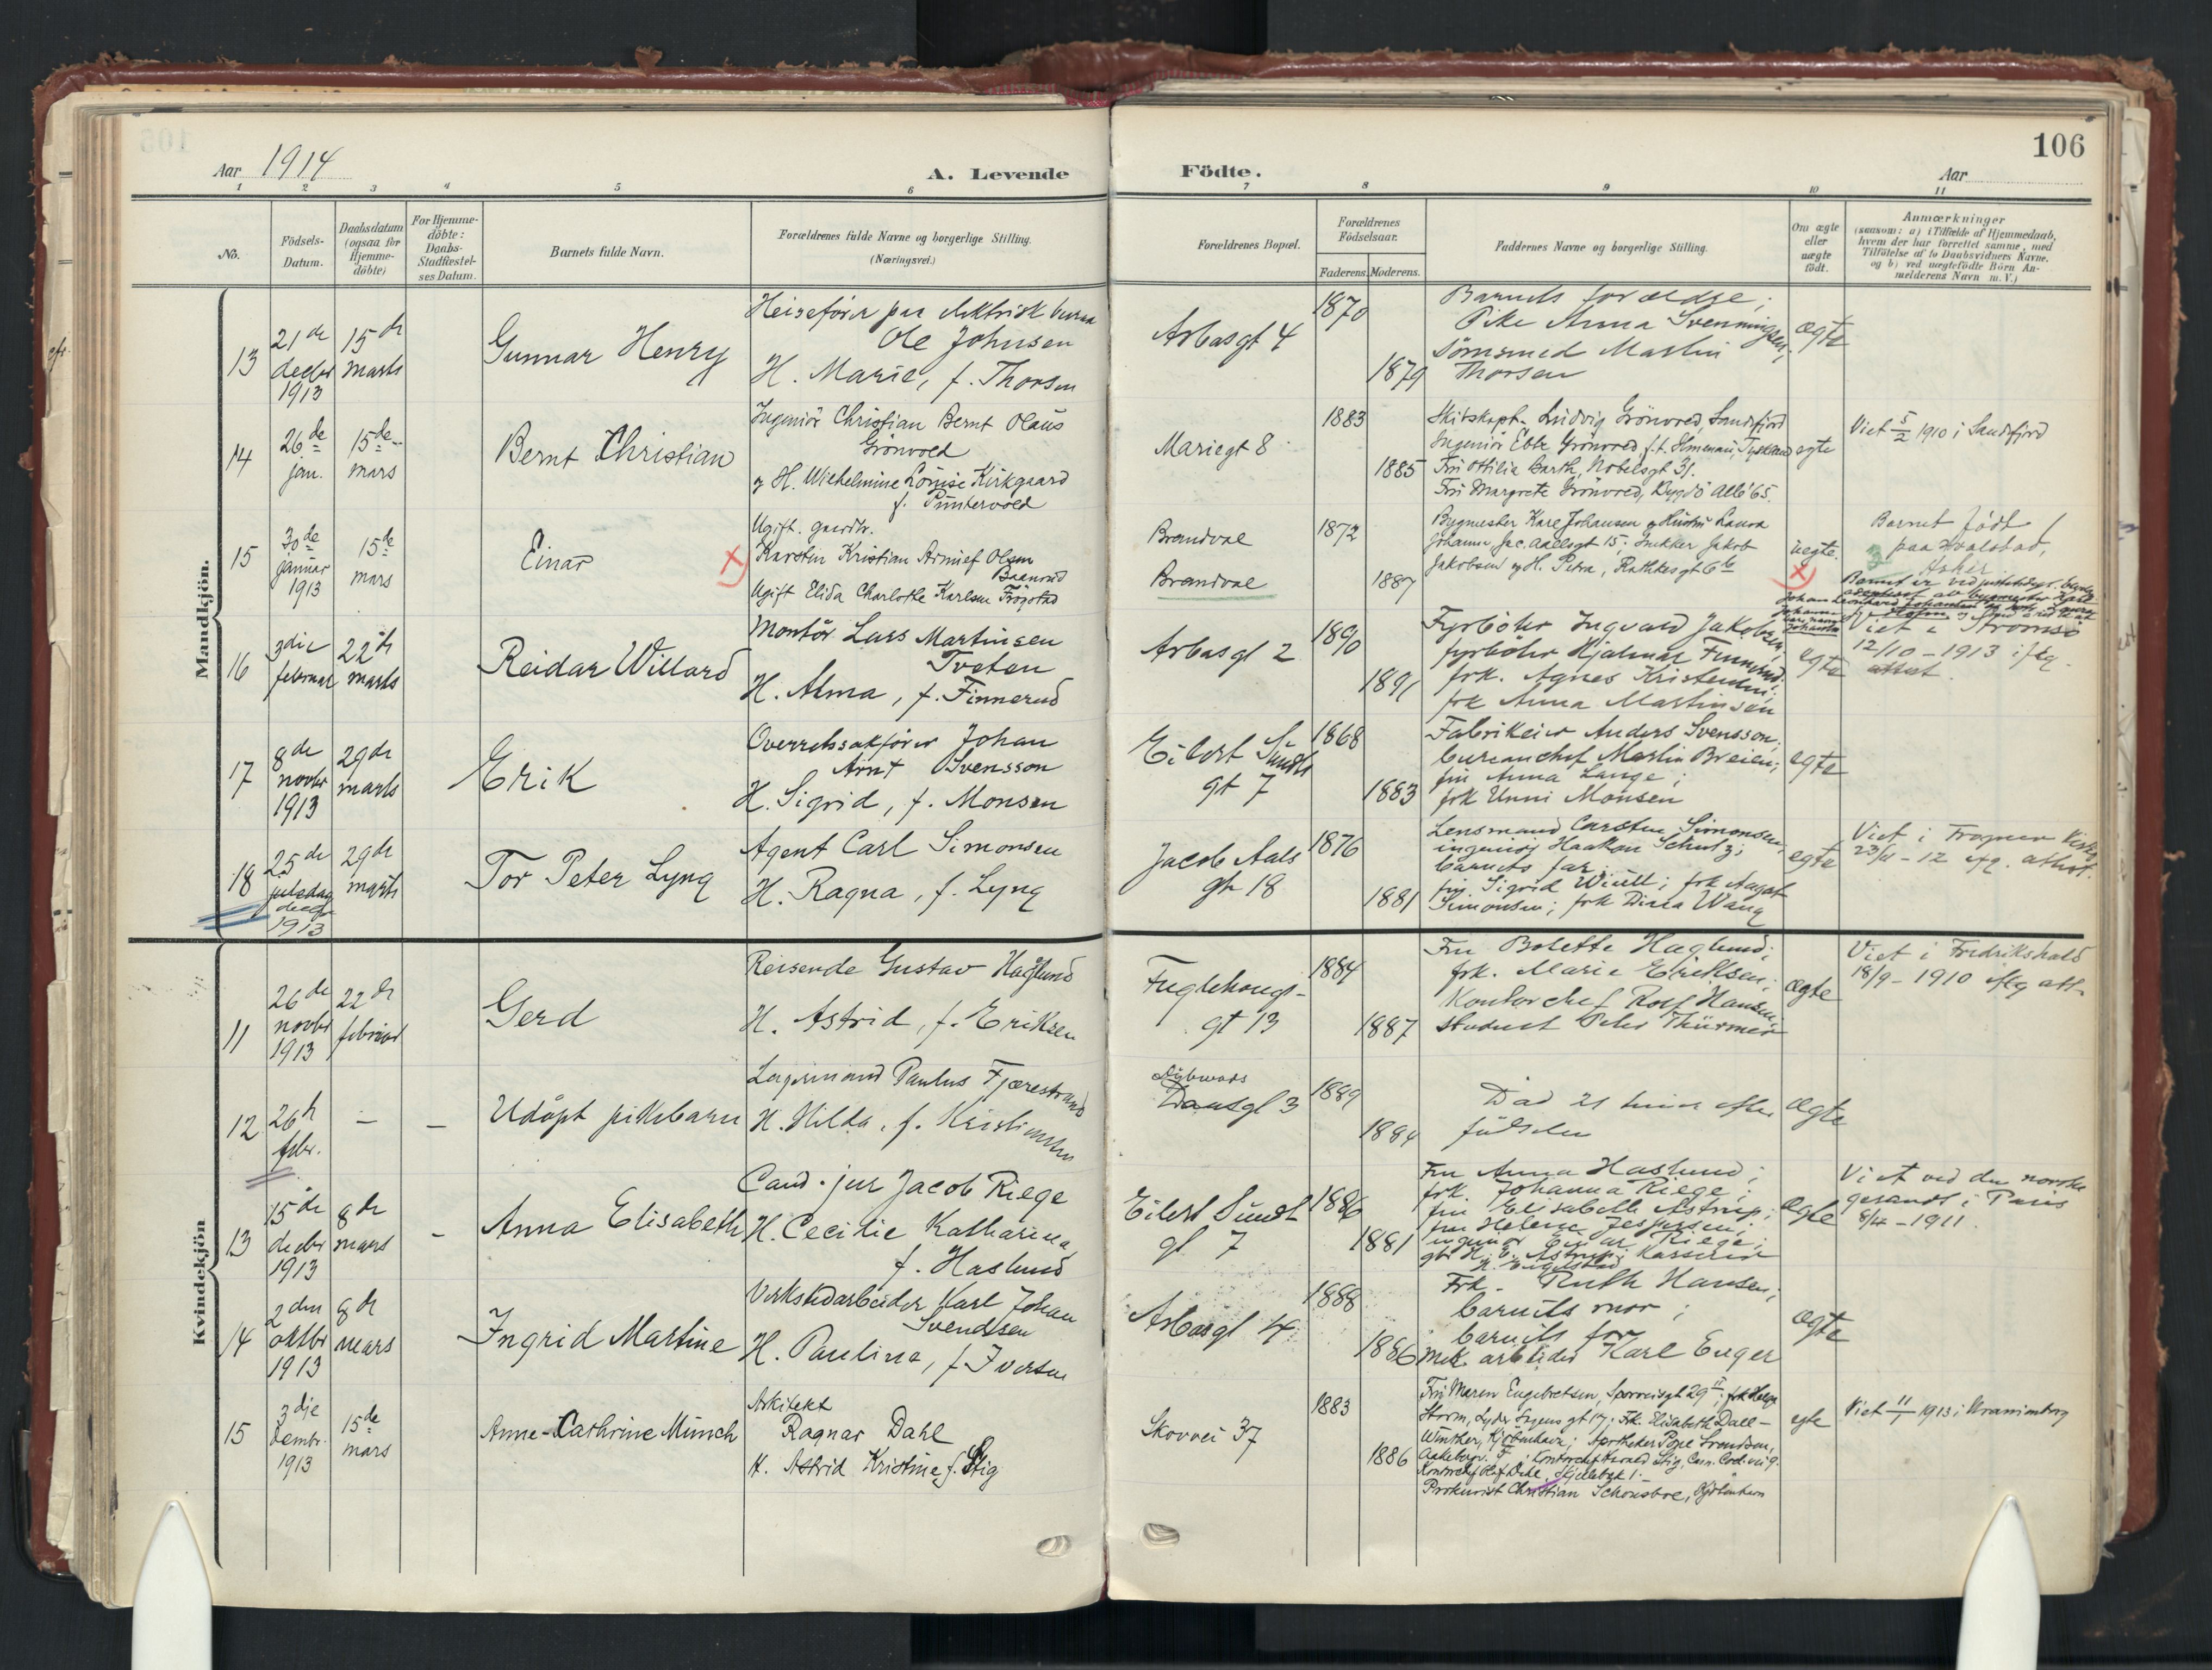 106
Aar 1914
A. Levende
Födte.
Aar
1 2 3 4 5 6 7 8 9 10 11
No.
Födsels-
Datum.
Daabsdatum
(ogsaa for
Hjemme-
döbte)
For Hjemme-
döbte:
Daabs-
Stadfæstel-
ses Datum.
Barnets fulde Navn.
Forældrenes fulde Navne og borgerlige Stilling.
(Næringsvei.)
Forældrenes Bopæl.
Forældrenes
Födselsaar.
Faderens. Moderens.
Faddernes Navne og borgerlige Stilling.
Om ægte
eller
uægte
födt.
Anmærkninger
(saasom: a) i Tilfælde af Hjemmedaab,
hvem der har forrettet samme, med
Tilföielse af to Daabsvidners Navne.
og b) ved uægtefödte Börn An-
melderens Navn m. V.)
Mandkjön.
13
21 de
decbr
1913
15 de
marts
Gunnar Henry
Heiseförer paa elektrisk
Ole Johnsen
H. Marie, f. Thorsen
Arbosgt 4
1870
1879
Barnets forældre;
Pike Anna Svenningsen;
Sömsmed Martin
Thorsen
ægte
14
26 de
jan.
15 de
mars
Bernt Christian
Ingeniör Christian Bernt Olaus
Grönvold
og H. Wilhelmine Louise Kirkgaard
f. Püntervold
Mariegt 8
1883
1885
Skibskapt. Ludvig Grönvold, Sandefjord
Ingeniör Ebbe Grönvold, f.t. Ilmenau, Tyskland
Fru Ottilia Barth, Nobelsgt 31.
Fru Margrete Grönvold, Bygdö Allé 65.
egte
Viet 5/2 1910 i Sandefjord
15
30 de
januar
1913
15 de
mars
Einar
Ugift. gaardbr.
Karsten Kristian Arnulf Olsen
Ugift Elida Charlotte Karlsen Frögstad
Brandval
Brandval
1872
1887
Bygmester Karl Johansen og Hustru Laura
Johansen Jac. Aallsgt 15; Snekker Jakob
Jakobsen og H. Petra, Rathkesgt 6
uegte.
Barnet födt
paa Hvalstad,
Asker
16
3die
februar
22 de
marts
Reidar Willard
Montör Lars Martinsen
Tveten
H. Alma, f. Finnerud
Arbosgt 2
1890
1891
Fyrböter Ingvald Jakobsen;
fyrböter Hjalmar Finnerud;
frk. Agnes Kristensen;
frk Anna Martinsen
egte
Viet i Strömsö
12/10 - 1913 iflg.
attest.
17
8 de
novbr
1913
29 de
marts
Erik
Overretssakförer Johan
Arnt Svensson
H. Sigrid, f. Monsen
Eilert Sundts
gt 7
1868
1883
Fabrikeier Anders Svensson;
bureauchef Martin Breien;
fru Anna Lange;
frk Unni Monsen
egte
18
25 de
juledag
decbr
1913
29 de
marts
Tor Peter Lyng
Agent Carl Simonsen
H. Ragna, f. Lyng
Jacob Aals
gt 18
1876
1881
Lensmand Carsten Simonsen,
ingeniör Haakon Schultz;
barnets far;
fru Sigrid Wiull; frk Aagot
Simonsen; frk Dina Wang
egte
Viet i Frogner Kirke
23/11 - 12 iflg. attest.
Kvindekjön
11
26 de
novbr
1913
22 de
februar
Gerd
Reisende Gustav Haglund
H. Astrid, f. Eriksen
Fuglehaugs-
gt 13
1884
1887
Fru Bolette Haglund;
frk. Marie Eriksen;
Kontorchef Rolf Hansen;
student Peter Thürmer
ægte
Viet i Fredrikshald
18/9 - 1910 iflg att.
12
26 de
febr.
—
—
Udöpt pikebarn
Lagermand Paulus Fjærestrand
H. Hilda, f. Kristiansen
Dybwads
Daasgt 3
1889
1884
Död 21 timer efter
födselen
ægte
13
15 de
decbr
1913
8 de
mars
-
Anna Elisabeth
Cand. jur Jacob Riege
H. Cecilie Katharina
f. Haslund
Eilert Sundt
gt 7
1886
1881
Fru Anna Haslund;
frk. Johanna Riege;
fru Elisabeth Astrup;
fru Helene Jespersen;
ingeniör Einar Riege;
ægte
Viet ved den norske
gesandt i Paris
8/4 - 1911.
14
2 den
oktbr
1913
8 de
mars
Ingrid Martine
Verkstedarbeider Karl Johan
Svendsen
H. Pauline, f. Iversen
Arbosgt 4
1888
1886
Frk. Ruth Hansen;
barnets mor;
barnets far
mek. arbeider Karl Enger
ægte
15
3dje
dembr.
1913
15 de
mars
Anne-Cathrine Münch
Arkitekt
Ragnar Dahl
H. Astrid Kristine f. Stig
Skovvei 37
1883
1886
Fru Maren Engebretsen, Sporveisgt 29; frk Helga
Storm, Lyder Sagens gt 17; Frk. Elisabeth Dall-
Winther, Kjöbenhavn; Apotheker Pope Svendsen,
Kontorchef Olaf Dahl, Skjellebæk 1.
Prokurist Christian Schousboe, Kjöbenhavn
egte
Viet 11/1 1913 i Uranienborg